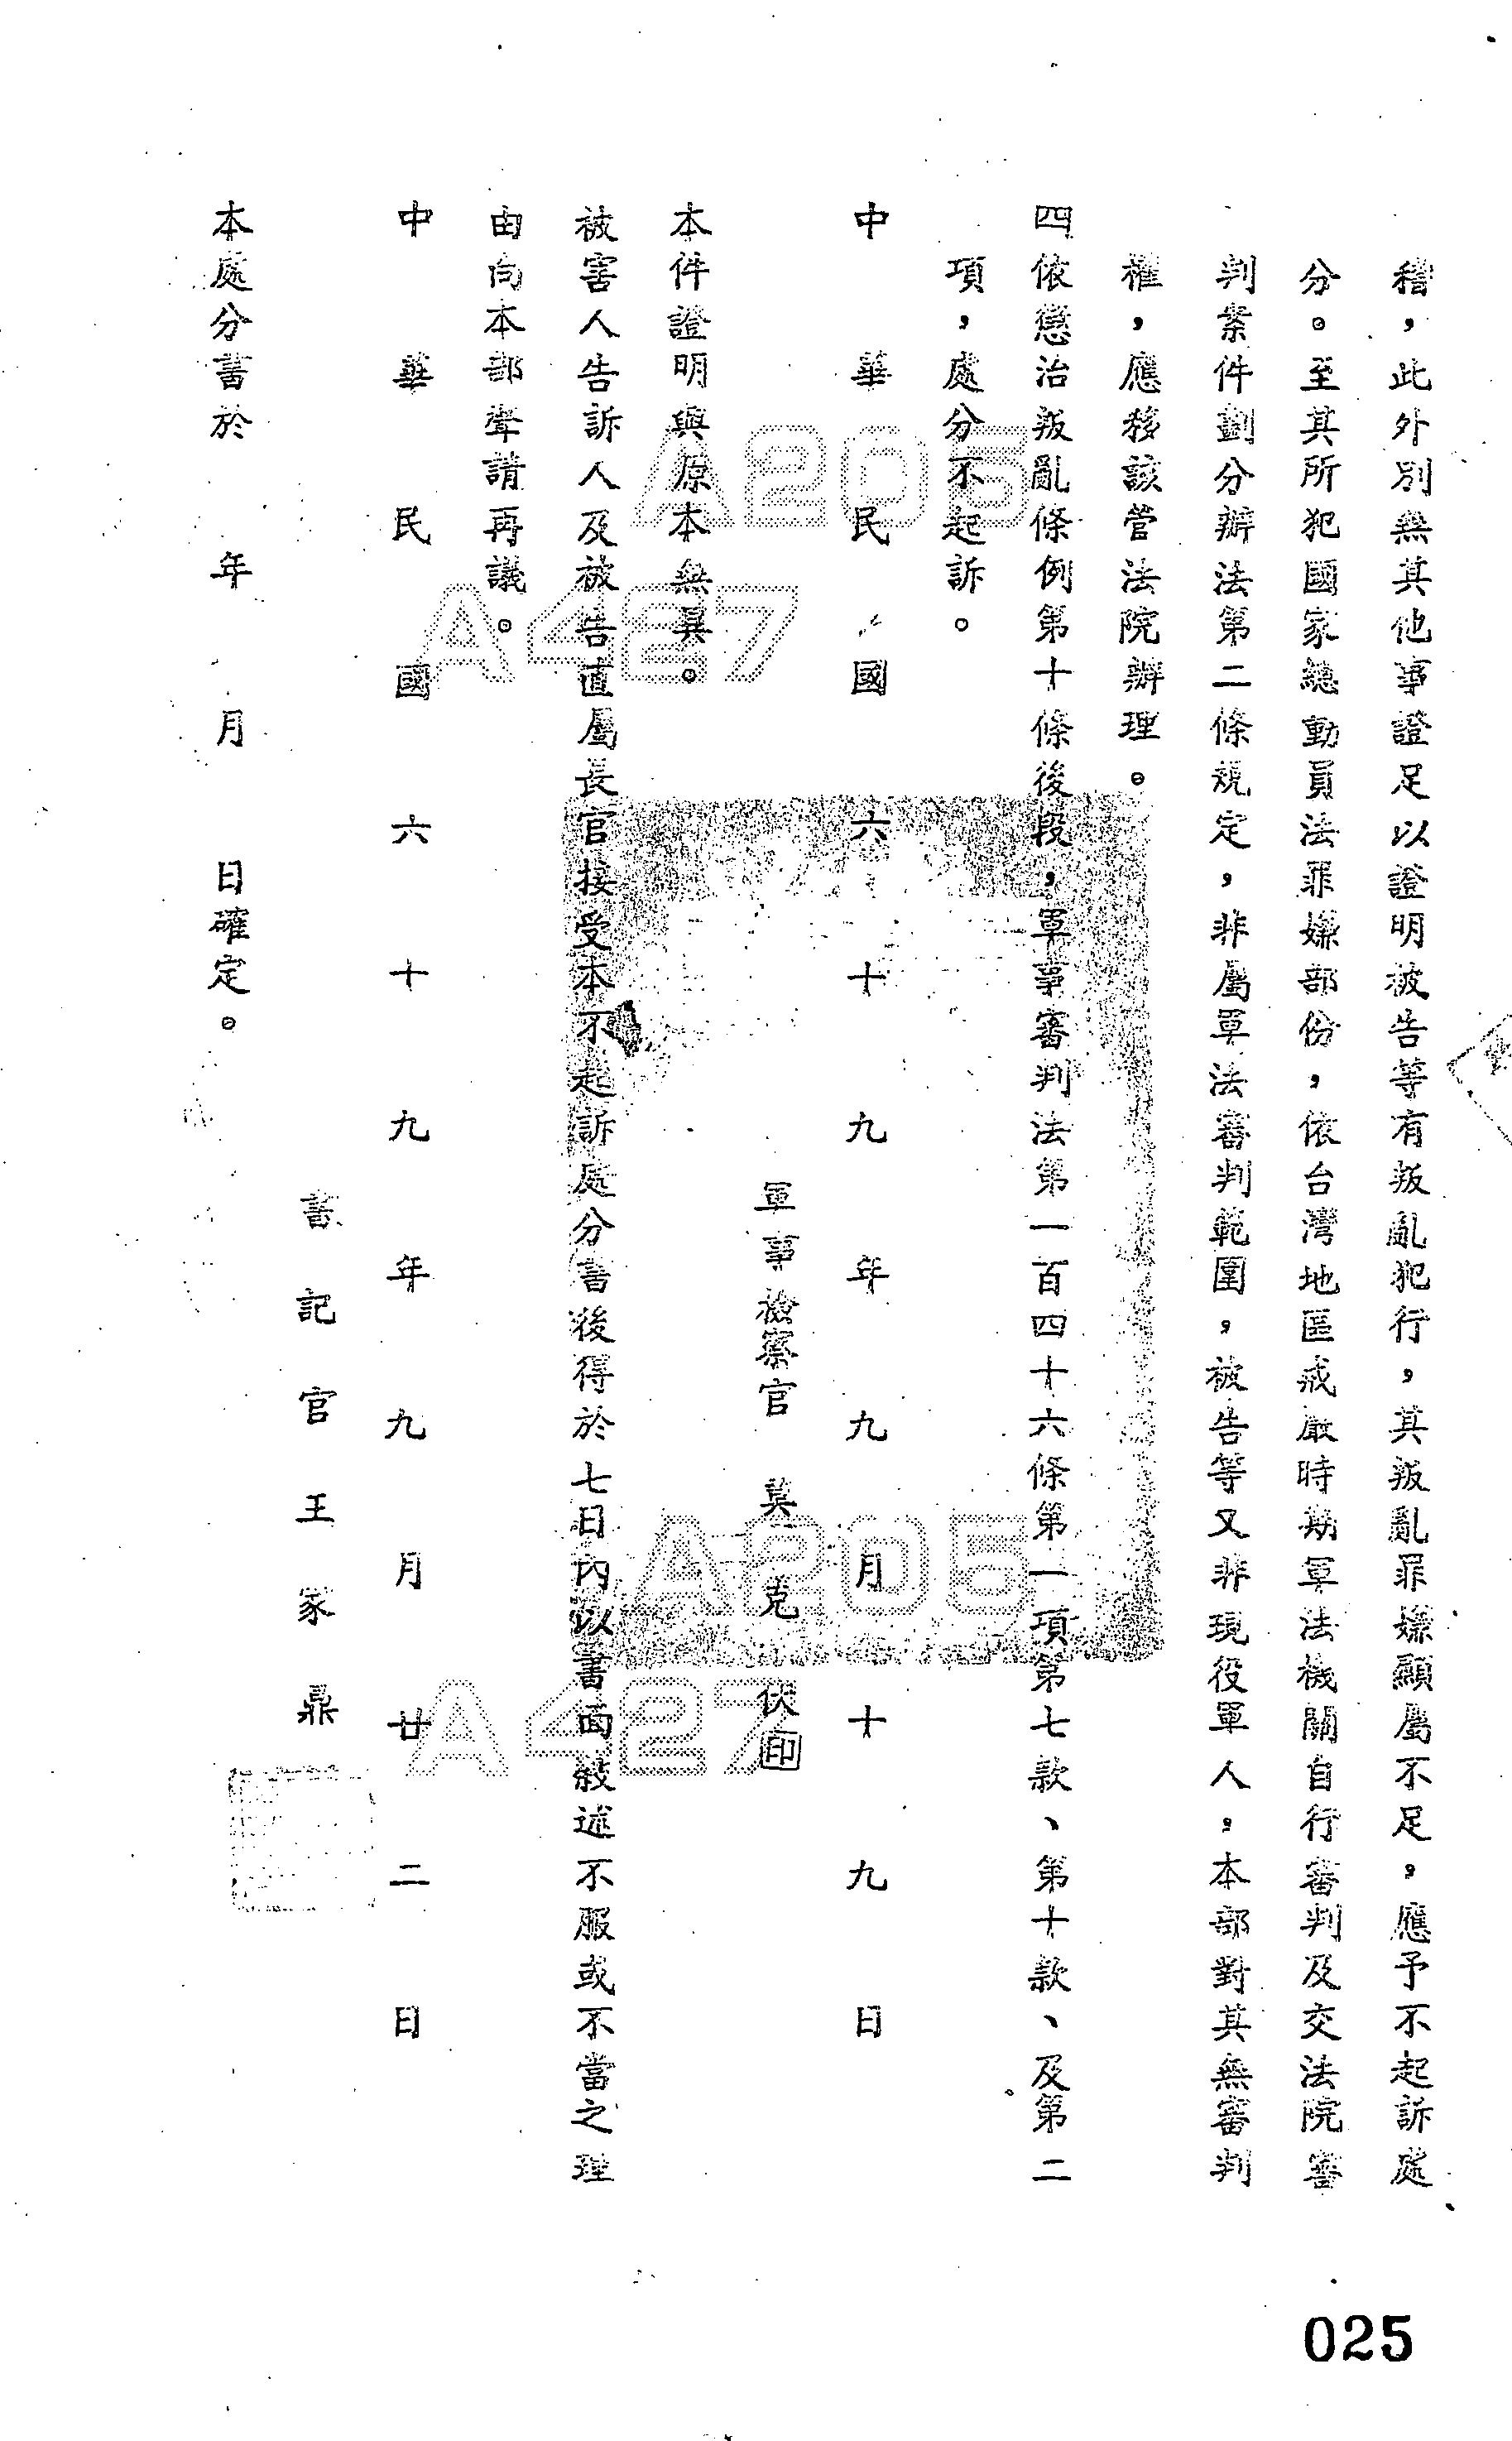 稽，此外別無其他事證足以證明被告等有叛亂犯行，其叛亂罪嫌顯屬不足，應予不起訴處
分。至其所犯國家總動員法罪嫌部份，依台灣地區戒嚴時期軍法機關自行審判及交法院審
判案件劃分辦法第二條規定，非屬軍法審判範圍，被告等又非現役軍人，本部對其無審判
權，應移該管法院辦理。
四依懲治叛亂條例第十條後段，軍事審判法第一百四十六條第一項第七款、第十款、及第二
項，處分不起訴。
中華民國六十九年九月十九日
軍事檢察官 莫克 印
本件證明與原本無異。
被害人告訴人及被告直屬長官接受本不起訴處分書後得於七日內以書面敍述不服或不當之理
由向本部聲請再議。
中華民國六十九年九月廿二日
書記官王家鼎
本處分書於 年 月 日確定。
A205
A427
A205
A427
025